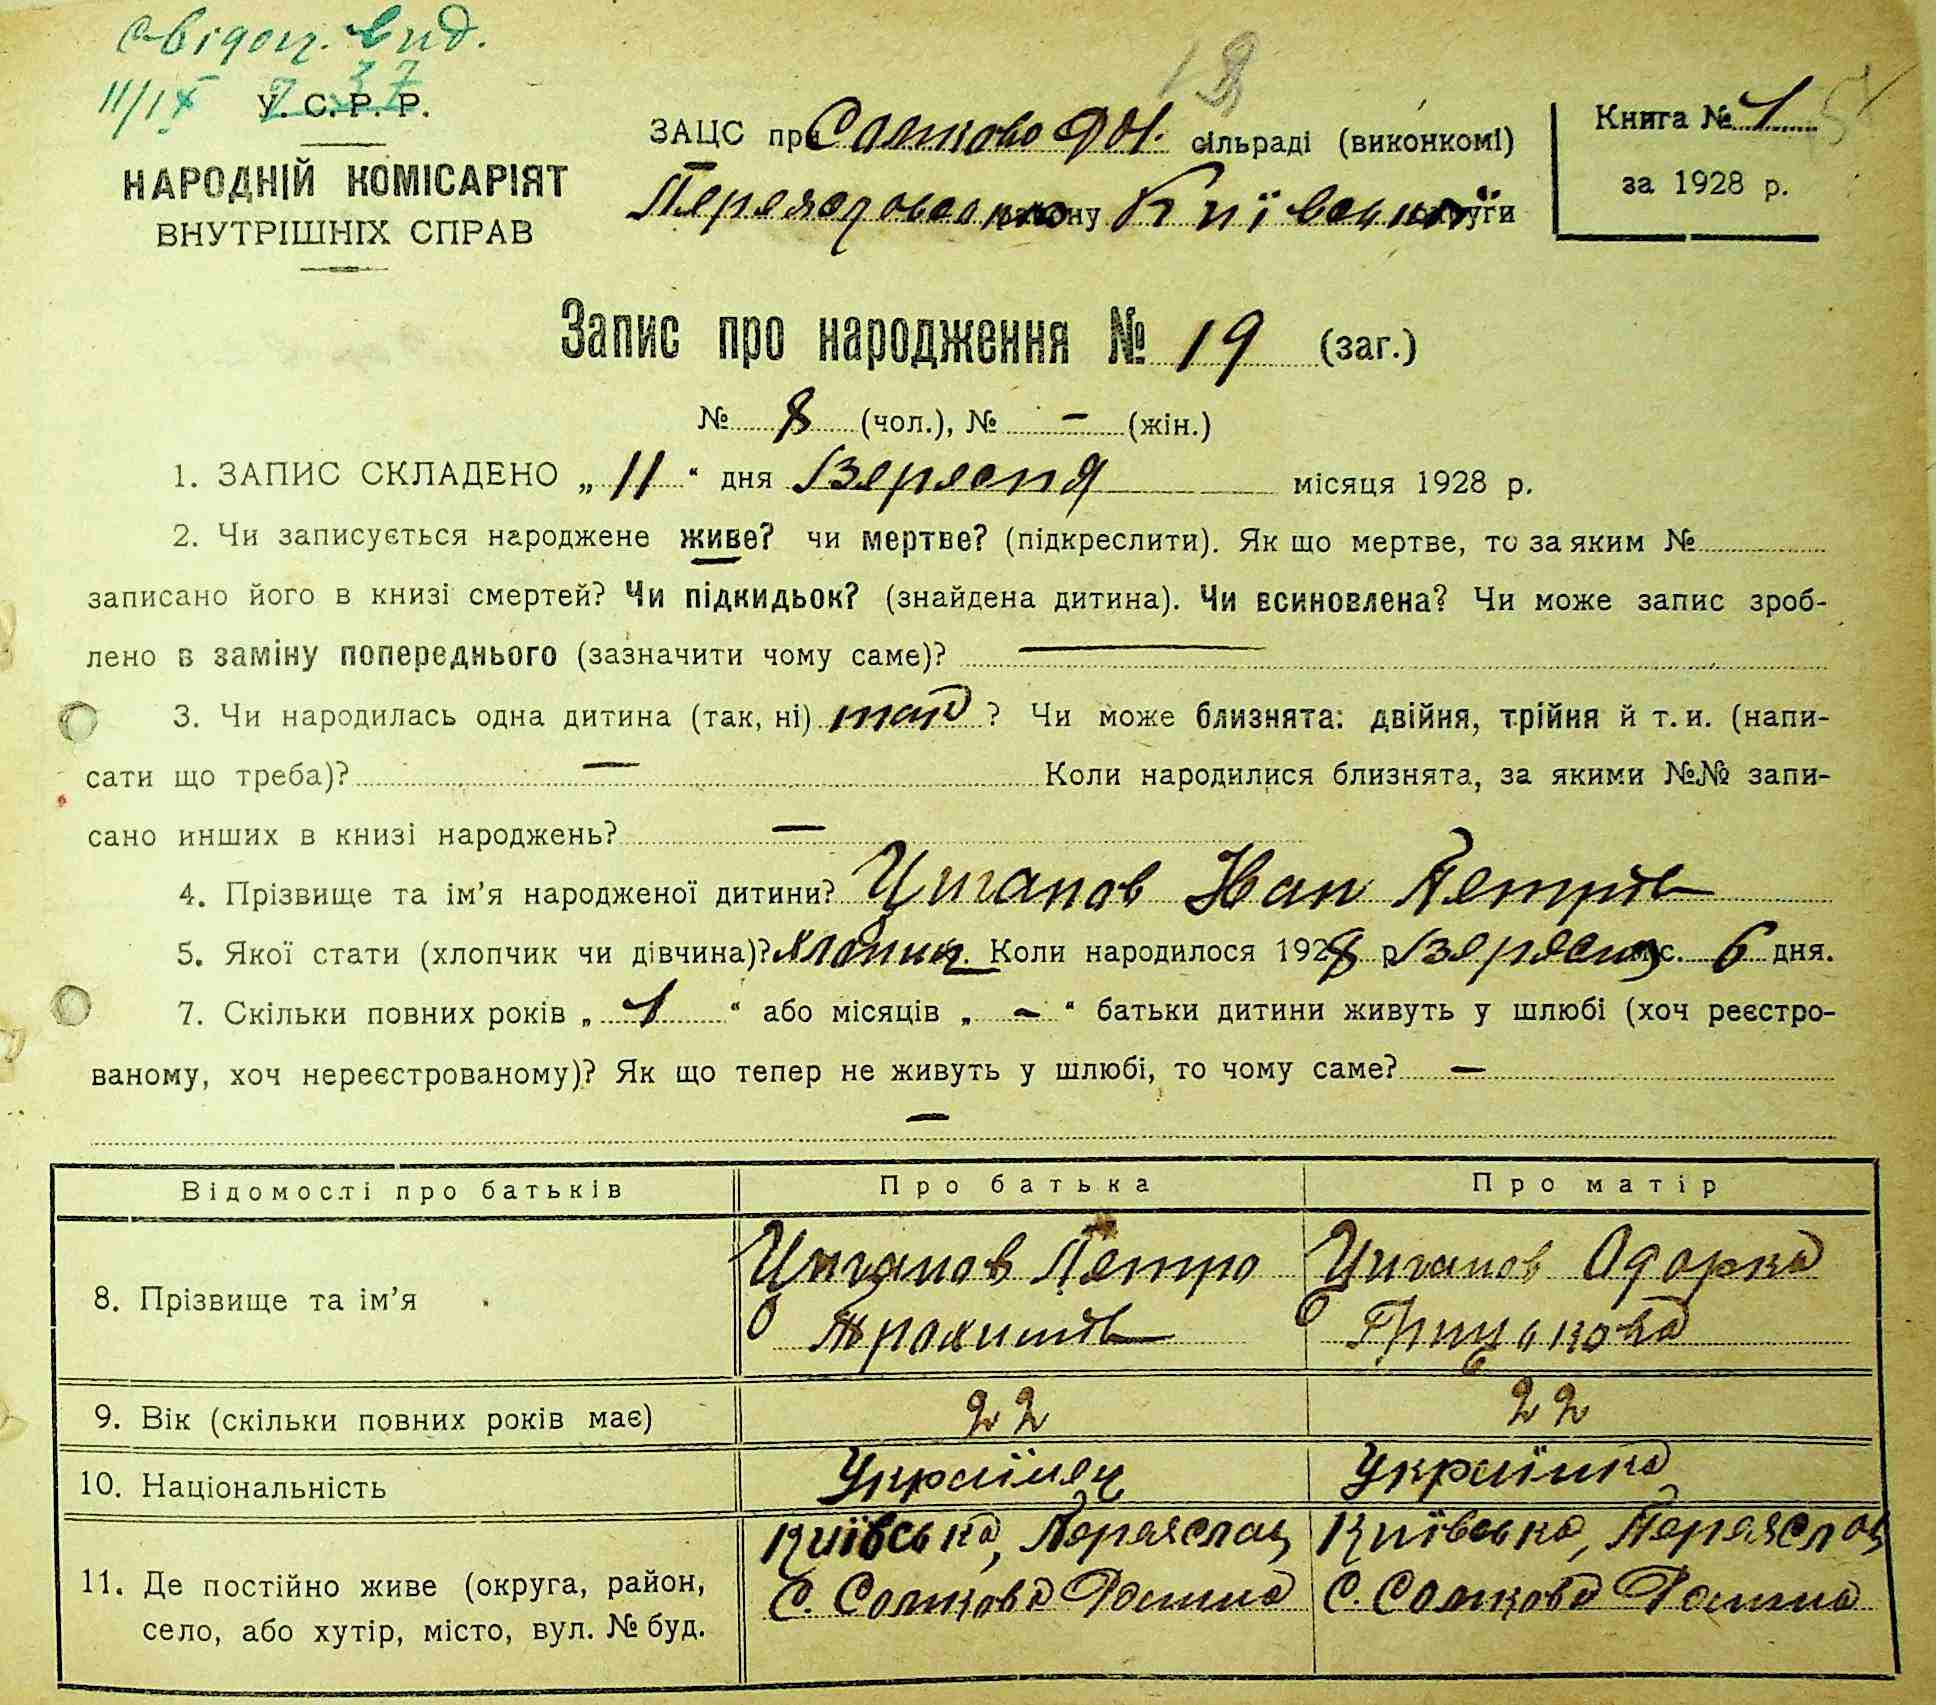 свідоц. вид.
11/IX 37
У. С. Р. Р.
НАРОДНІЙ КОМІСАРІЯТ
ВНУТРІШНІХ СПРАВ
ЗАЦС при Сомково Дол. сільраді (виконкомі)
Переяславському району Київської округи
Книга № 1
за 1928 р.
Запис про народження № 19 (заг.)
№ 8 (чол.), № – (жін.)
1. ЗАПИС СКЛАДЕНО „ 11 “ дня Вересня місяця 1928 р.
2. Чи записується народжене живе? чи мертве? (підкреслити). Як що мертве, то за яким №
записано його в книзі смертей? Чи підкидьок? (знайдена дитина). Чи всиновлена? Чи може запис зроб-
лено в заміну попереднього (зазначити чому саме)? —
3. Чи народилась одна дитина (так, ні) так ? Чи може близнята: двійня, трійня й т. и. (напи-
сати що треба)? — Коли народилися близнята, за якими №№ запи-
сано инших в книзі народжень? —
4. Прізвище та ім’я народженої дитини? Циганов Иван Петрів
5. Якої стати (хлопчик чи дівчина)? хлопчик. Коли народилося 1928 р. Вересня міс. 6 дня.
7. Скільки повних років „ 1 “ або місяців „ – “ батьки дитини живуть у шлюбі (хоч реєстро-
ваному, хоч нереєстрованому)? Як що тепер не живуть у шлюбі, то чому саме? —
—
Відомості про батьків Про батька Про матір
8. Прізвище та ім’я
Циганов Петро
Трохимів
Циганов Одарка
Грицькова
9. Вік (скільки повних років має) 22 22
10. Національність Українец Українка
11. Де постійно живе (округа, район,
село, або хутір, місто, вул. № буд.
Київська, Переяслац
С. Сомкова Долина
Київська, Переяслац
С. Сомкова Долина